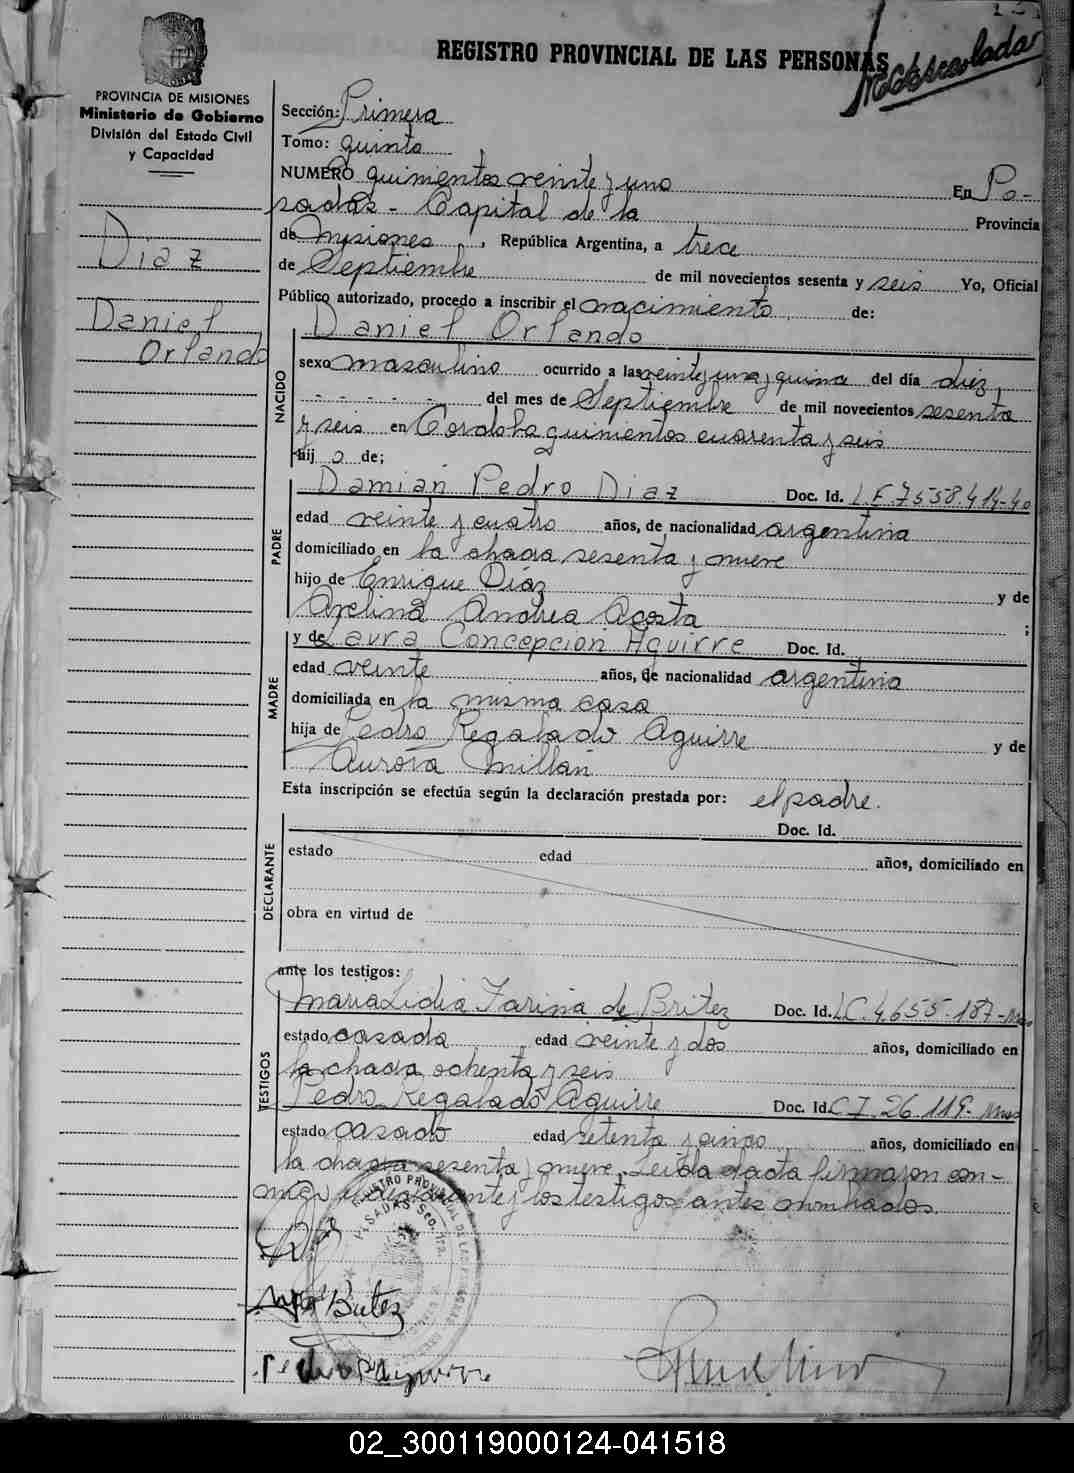 REGISTRO PROVINCIAL DE LAS PERSONAS
PROVINCIA DE MISIONES
Ministerio de Gobierno
División del Estado Civil
y Capacidad
Diaz
Daniel
Orlando
Sección: Primera
Tomo: quinto
NUMERO quinientos veinte y uno En Po-
sadas - Capital de la Provincia
de Misiones, República Argentina, a trece
de Septiembre de mil novecientos sesenta y seis Yo, Oficial
Público autorizado, procedo a inscribir el nacimiento de:
NACIDO
Daniel Orlando
sexo masculino ocurrido a las veinte y una y quince del día diez,
del mes de Septiembre de mil novecientos sesenta
y seis en Cordoba quinientos cuarenta y seis
hij o de;
PADRE
Damian Pedro Diaz Doc. Id. L.E. 7558.414-40
edad veinte y cuatro años, de nacionalidad argentina
domiciliado en la chacra sesenta y nueve
hijo de Enrique Díaz y de
Avelina Andrea Acosta ;
MADRE
y de Laura Concepcion Aguirre Doc. Id.
edad veinte años, de nacionalidad argentina
domiciliada en la misma casa
hija de Pedro Regalado Aguirre y de
Aurora Millan
Esta inscripción se efectúa según la declaración prestada por: el padre.
DECLARANTE
Doc. Id.
estado edad años, domiciliado en
obra en virtud de
ante los testigos:
TESTIGOS
Maria Lidia Farina de Britez Doc. Id. L.C. 4.655.187-
estado casada edad veinte y dos años, domiciliado en
la chacra ochenta y seis
Pedro Regalado Aguirre Doc. Id. C.I. 26.119-
estado casado edad setenta y cinco años, domiciliado en
la chacra sesenta y nueve. Leida el acta firmaron con-
migo el declarante y los testigos antes nombrados.
Britez
02_300119000124-041518